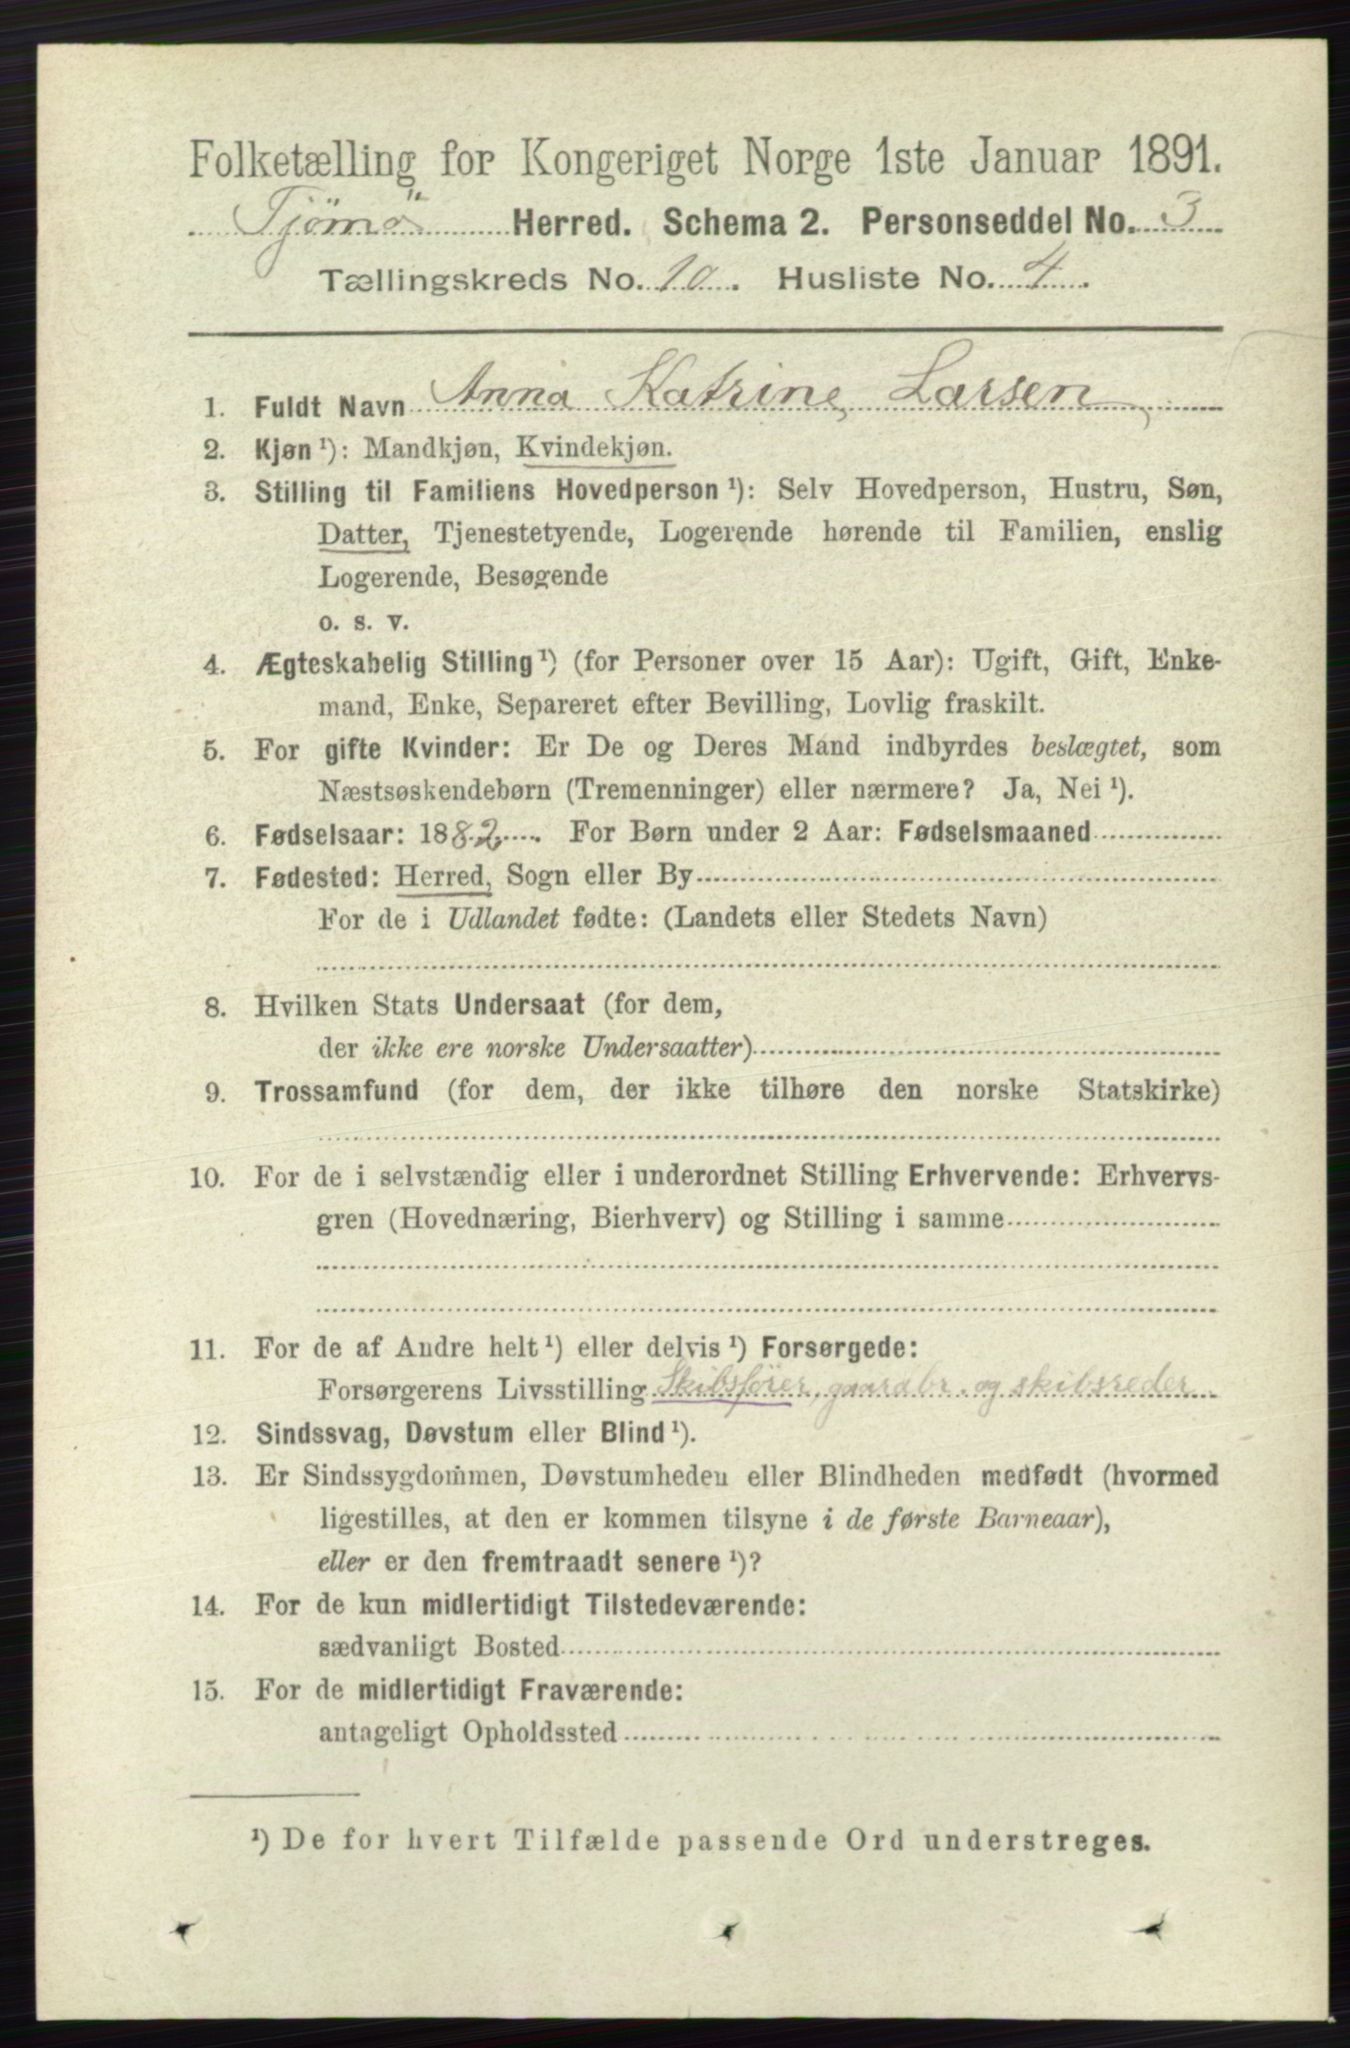 Folketælling for Kongeriget Norge 1ste Januar 1891.
Tjömö Herred. Schema 2. Personseddel No. 3
Tællingskreds No. 10. Husliste No. 4.
1. Fuldt Navn Anna Katrine Larsen
2. Kjøn ¹): Mandkjøn, Kvindekjøn.
3. Stilling til Familiens Hovedperson ¹): Selv Hovedperson, Hustru, Søn,
Datter, Tjenestetyende, Logerende hørende til Familien, enslig
Logerende, Besøgende
o. s. v.
4. Ægteskabelig Stilling ¹) (for Personer over 15 Aar): Ugift, Gift, Enke-
mand, Enke, Separeret efter Bevilling, Lovlig fraskilt.
5. For gifte Kvinder: Er De og Deres Mand indbyrdes beslægtet, som
Næstsøskendebørn (Tremenninger) eller nærmere? Ja, Nei ¹).
6. Fødselsaar: 1882. For Børn under 2 Aar: Fødselsmaaned
7. Fødested: Herred, Sogn eller By
For de i Udlandet fødte: (Landets eller Stedets Navn)
8. Hvilken Stats Undersaat (for dem,
der ikke ere norske Undersaatter)
9. Trossamfund (for dem, der ikke tilhøre den norske Statskirke)
10. For de i selvstændig eller i underordnet Stilling Erhvervende: Erhvervs-
gren (Hovednæring, Bierhverv) og Stilling i samme
11. For de af Andre helt ¹) eller delvis ¹) Forsørgede:
Forsørgerens Livsstilling Skibsfører, gaardbr. og skibsreder
12. Sindssvag, Døvstum eller Blind ¹).
13. Er Sindssygdommen, Døvstumheden eller Blindheden medfødt (hvormed
ligestilles, at den er kommen tilsyne i de første Barneaar),
eller er den fremtraadt senere ¹)?
14. For de kun midlertidigt Tilstedeværende:
sædvanligt Bosted
15. For de midlertidigt Fraværende:
antageligt Opholdssted
¹) De for hvert Tilfælde passende Ord understreges.